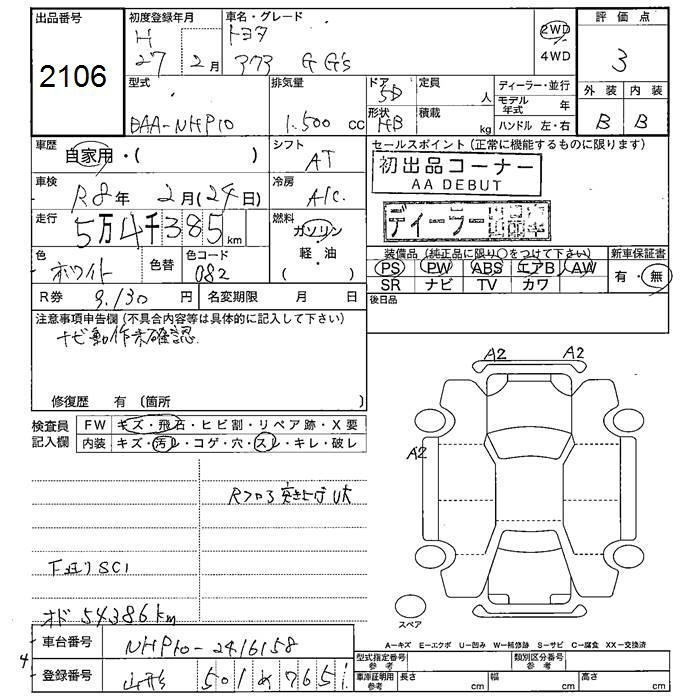 出品番号
2106
初度登録年月
H
27 2月
車名・グレード
トヨタ
アクア G G's
2WD
4WD
評価点
3
型式
DAA-NHP10
排気量
1.500 cc
ドア
5D
形状
HB
定員
人
積載
kg
ディーラー・並行
モデル年式 年
ハンドル 左・右
外装 内装
B B
車歴
自家用・( )
シフト
AT
車検
R8年 2月(24日)
冷房
A/C
走行
5万4千385km
燃料
ガソリン
軽・油
色
ホワイト
色替
色コード
082
R券 9.130 円
名変期限 月 日
セールスポイント(正常に機能するものに限ります)
初出品コーナー
AA DEBUT
ディーラー
装備品(純正品に限り○をつけて下さい)
PS PW ABS エアB AW
SR ナビ TV カワ
新車保証書
有・無
後日品
注意事項申告欄(不具合内容等は具体的に記入して下さい)
ナビ動作未確認
修復歴 有(箇所 )
検査員
記入欄
FW キズ・飛石・ヒビ割・リペア跡・X要
内装 キズ・汚レ・コゲ・穴・スレ・キレ・破レ
Rフロア突き上げU大
下廻りSC1
オド 54386km
A2 A2
A2
スペア
A-キズ E-エクボ U-凹み W-補修跡 S-サビ C-腐食 XX-交換済
車台番号 NHP10-2416158
4
登録番号 山形 501 ぬ 7651
型式指定番号
参考
類別区分番号
参考
車庫証明用
参考
長さ cm 幅 cm 高さ cm